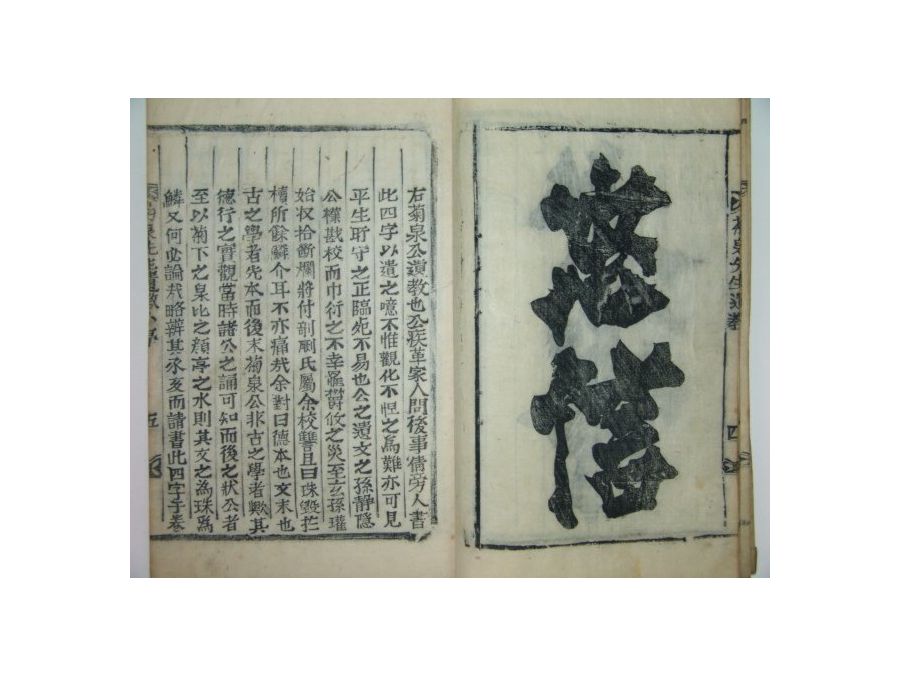 菊泉先生遺教
四
右菊泉公遺教也公疾革家人問後事倩旁人書
此四字以遺之噫不惟觀化不怛之爲難亦可見
平生所守之正臨死不易也公之遺文之孫靜隱
公檏戡校而巾衍之不幸罹欝攸之災至玄孫瓘
始収拾斷爛將付剞劂氏屬余校讐且曰珠毀於
櫝所餘鱗介耳不亦痛㢤余對曰德本也文末也
古之學者先本而後末菊泉公非古之學者歟其
德行之實觀當時諸公之誦可知而後之狀公者
至以菊下之泉比之潁亭之水則其文之爲珠爲
鱗又何必論㢤略辨其豕亥而請書此四字于卷
五